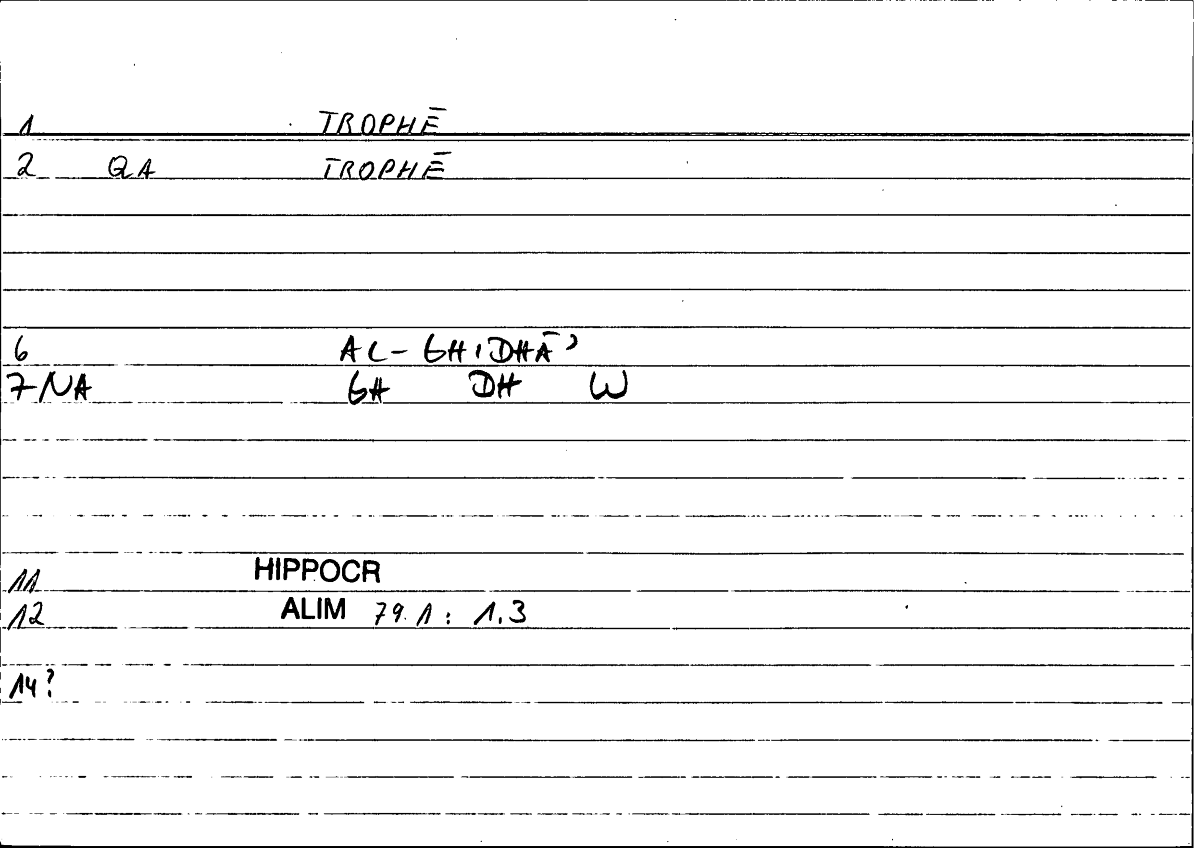 1 TROPHĒ
2 QA TROPHĒ
6 AL-GHIDHĀʾ
7/NA GH DH W
11 HIPPOCR
12 ALIM 79.1: 1.3
14?